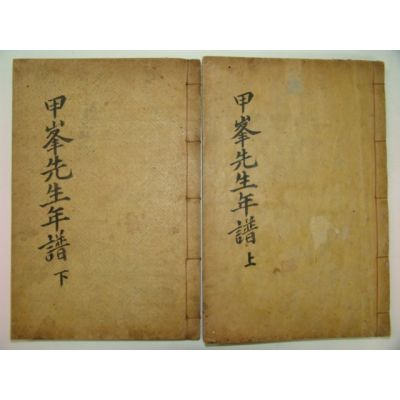 甲峯先生年譜 下
甲峯先生年譜 上